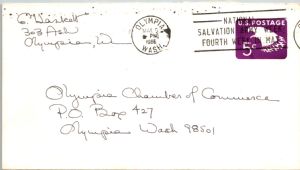 G. Harkett
303 Ash
Olympia, Wn
OLYMPIA
MAY
PM
1968
WASH.
NATIONAL
SALVATION ARMY
FOURTH WEEK IN MAY
U.S. POSTAGE
5¢
Olympia Chamber of Commerce
P.O. Box 427
Olympia Wash 98501